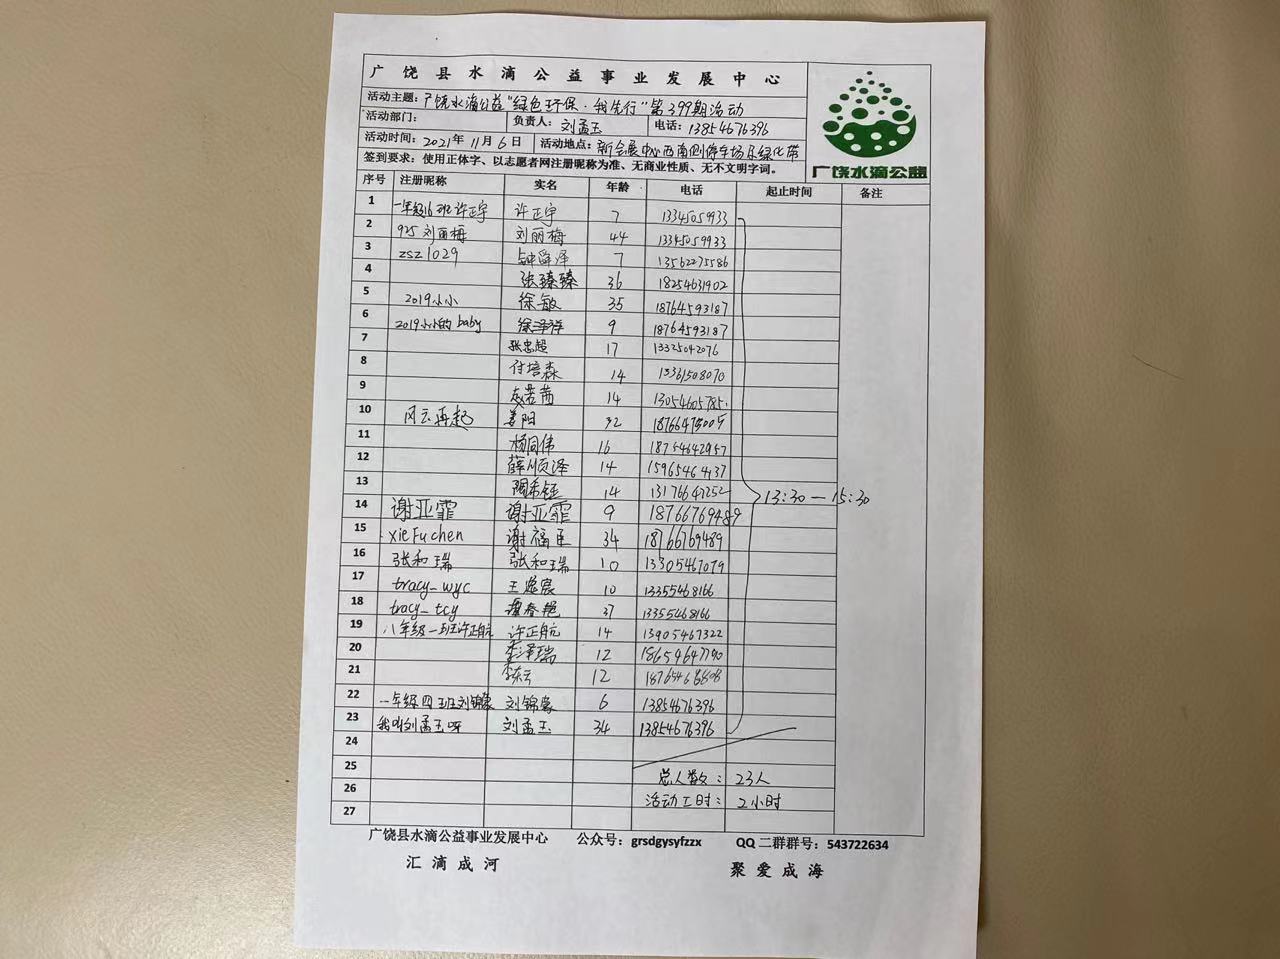 广饶县水滴公益事业发展中心
活动主题：广饶水滴公益"绿色环保·我先行"第399期活动
活动部门： 负责人：刘孟玉 电话：13854676396
活动时间：2021年11月6日 活动地点：新会展中心西南侧停车场及绿化带
签到要求：使用正体字、以志愿者网注册昵称为准、无商业性质、无不文明字词。
广饶水滴公益
序号 注册昵称 实名 年龄 电话 起止时间 备注
1 一年级16班许正宇 许正宇 7 13345059933
2 925刘丽梅 刘丽梅 44 13345059933
3 zsz1029 钟 泽 7 13562275586
4 张臻臻 36 18254631902
5 2019小小 徐敏 35 18764593187
6 2019小小的baby 徐泽祥 9 18764593187
7 张忠超 17 13325042076
8 付培森 14 13361508070
9 孟若茜 14 13054605785.
10 风云再起 姜阳 32
11 杨同伟 16 18754642957
12 薛顺泽 14 15965464137
13 14 13176647252
14 谢亚霏 谢亚霏 9 18766769489
15 xiefuchen 谢福臣 34 18766769489
16 张和瑞 张和瑞 10 13305467079
17 tracy_wyc 王逸宸 10 13355468166
18 tracy_tcy 谭春艳 37 13355468166
19 八年级一班许正航 许正航 14 13905467322
20 李泽瑞 12 18654647790
21 李东云 12
22 一年级四班刘锦豪 刘锦豪 6 13854676396
23 我叫刘孟玉呀 刘孟玉 34 13854676396
13:30—15:30
24
25 总人数：23人
26 活动工时：2小时
27
广饶县水滴公益事业发展中心 公众号：grsdgysyfzzx QQ二群群号：543722634
汇滴成河 聚爱成海